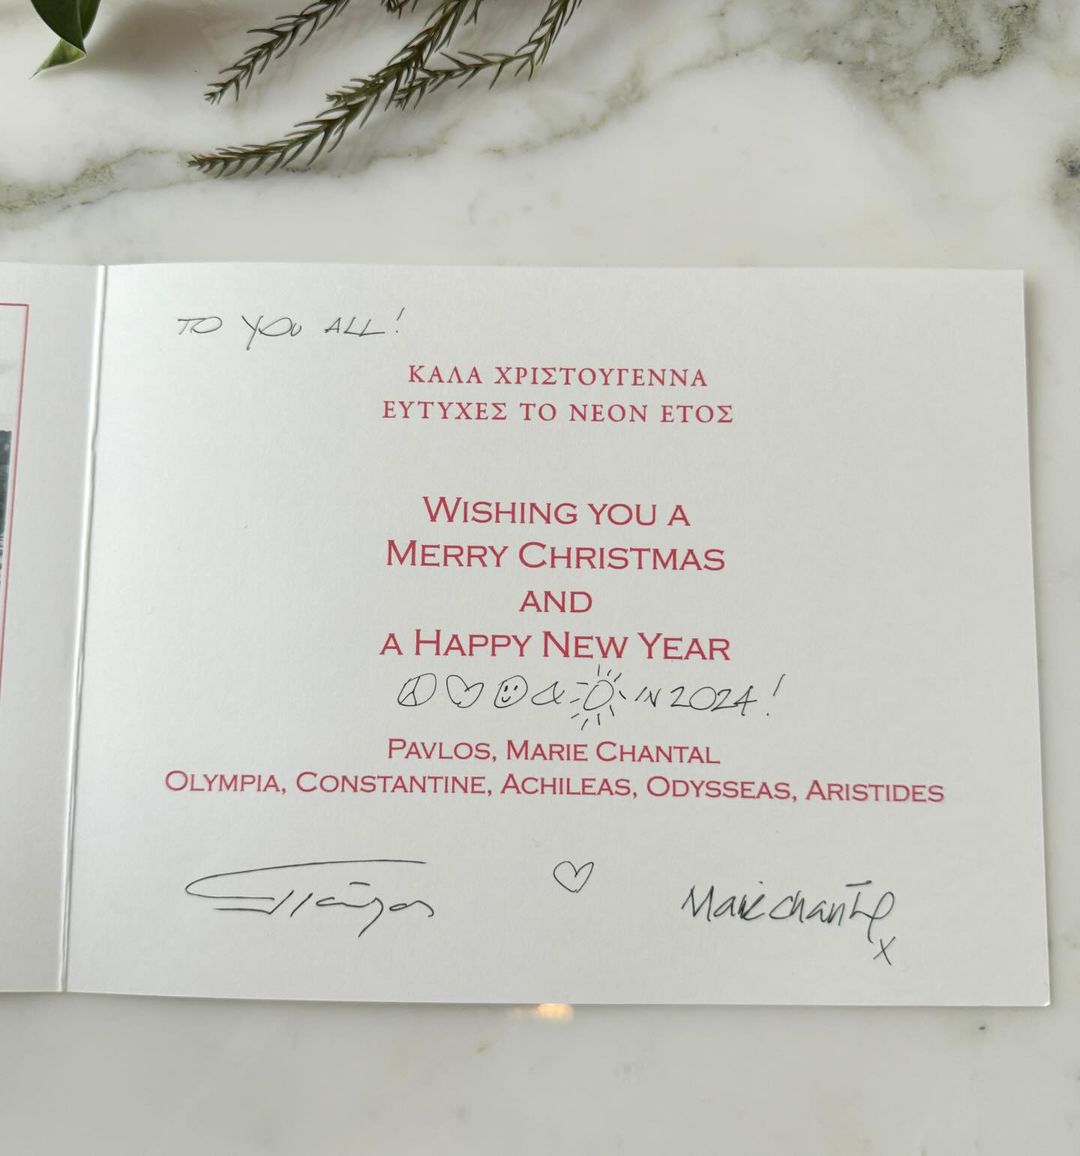 TO YOU ALL!
ΚΑΛΑ ΧΡΙΣΤΟΥΓΕΝΝΑ
ΕΥΤΥΧΕΣ ΤΟ ΝΕΟΝ ΕΤΟΣ
WISHING YOU A
MERRY CHRISTMAS
AND
A HAPPY NEW YEAR
& IN 2024!
PAVLOS, MARIE CHANTAL
OLYMPIA, CONSTANTINE, ACHILEAS, ODYSSEAS, ARISTIDES
Marie chantal
x